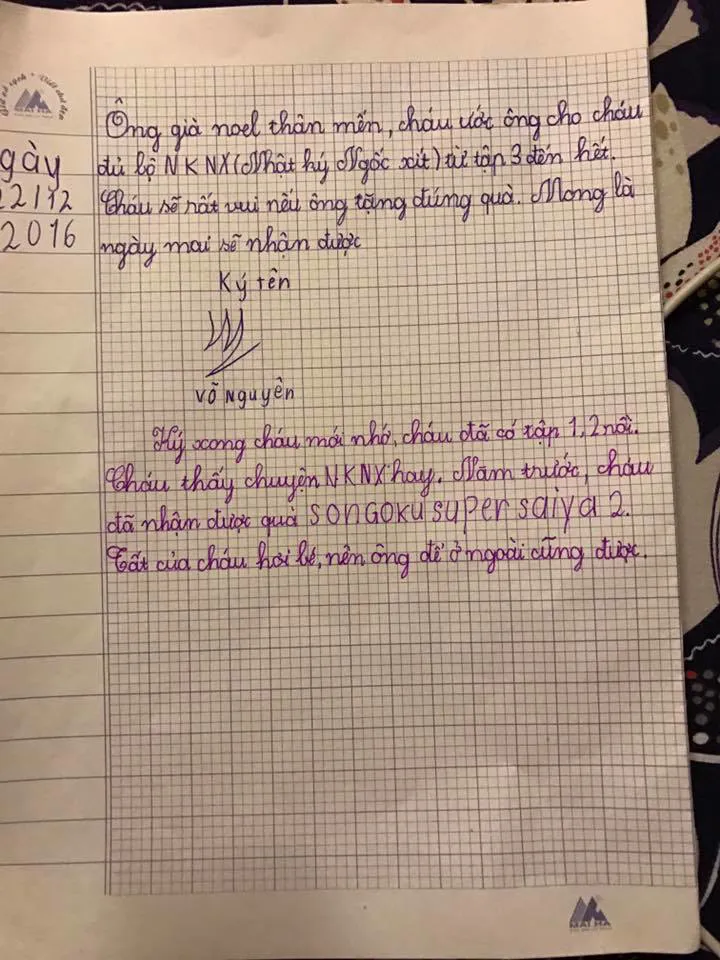 MAI HA
gày
22/12
2016
Ông già noel thân mến, cháu ước ông cho cháu
đủ bộ NKNX (Nhật ký Ngốc xít) từ tập 3 đến hết.
Cháu sẽ rất vui nếu ông tặng đúng quà. Mong là
ngày mai sẽ nhận được
Ký tên
Võ Nguyên
Ký xong cháu mới nhớ, cháu đã có tập 1, 2 rồi.
Cháu thấy chuyện NKNX hay. Năm trước, cháu
đã nhận được quà SONGOKU super saiya 2.
Tất của cháu hơi bé, nên ông để ở ngoài cũng được.
MAI HA